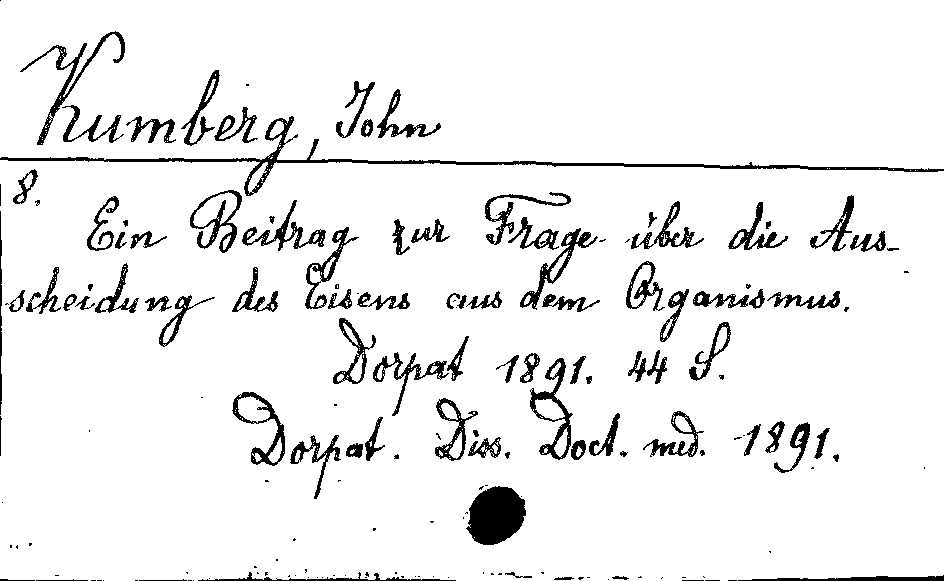 Kumberg, John
8.
Ein Beitrag zur Frage über die Aus-
scheidung des Eisens aus dem Organismus.
Dorpat 1891. 44 S.
Dorpat. Diss. Doct. med. 1891.